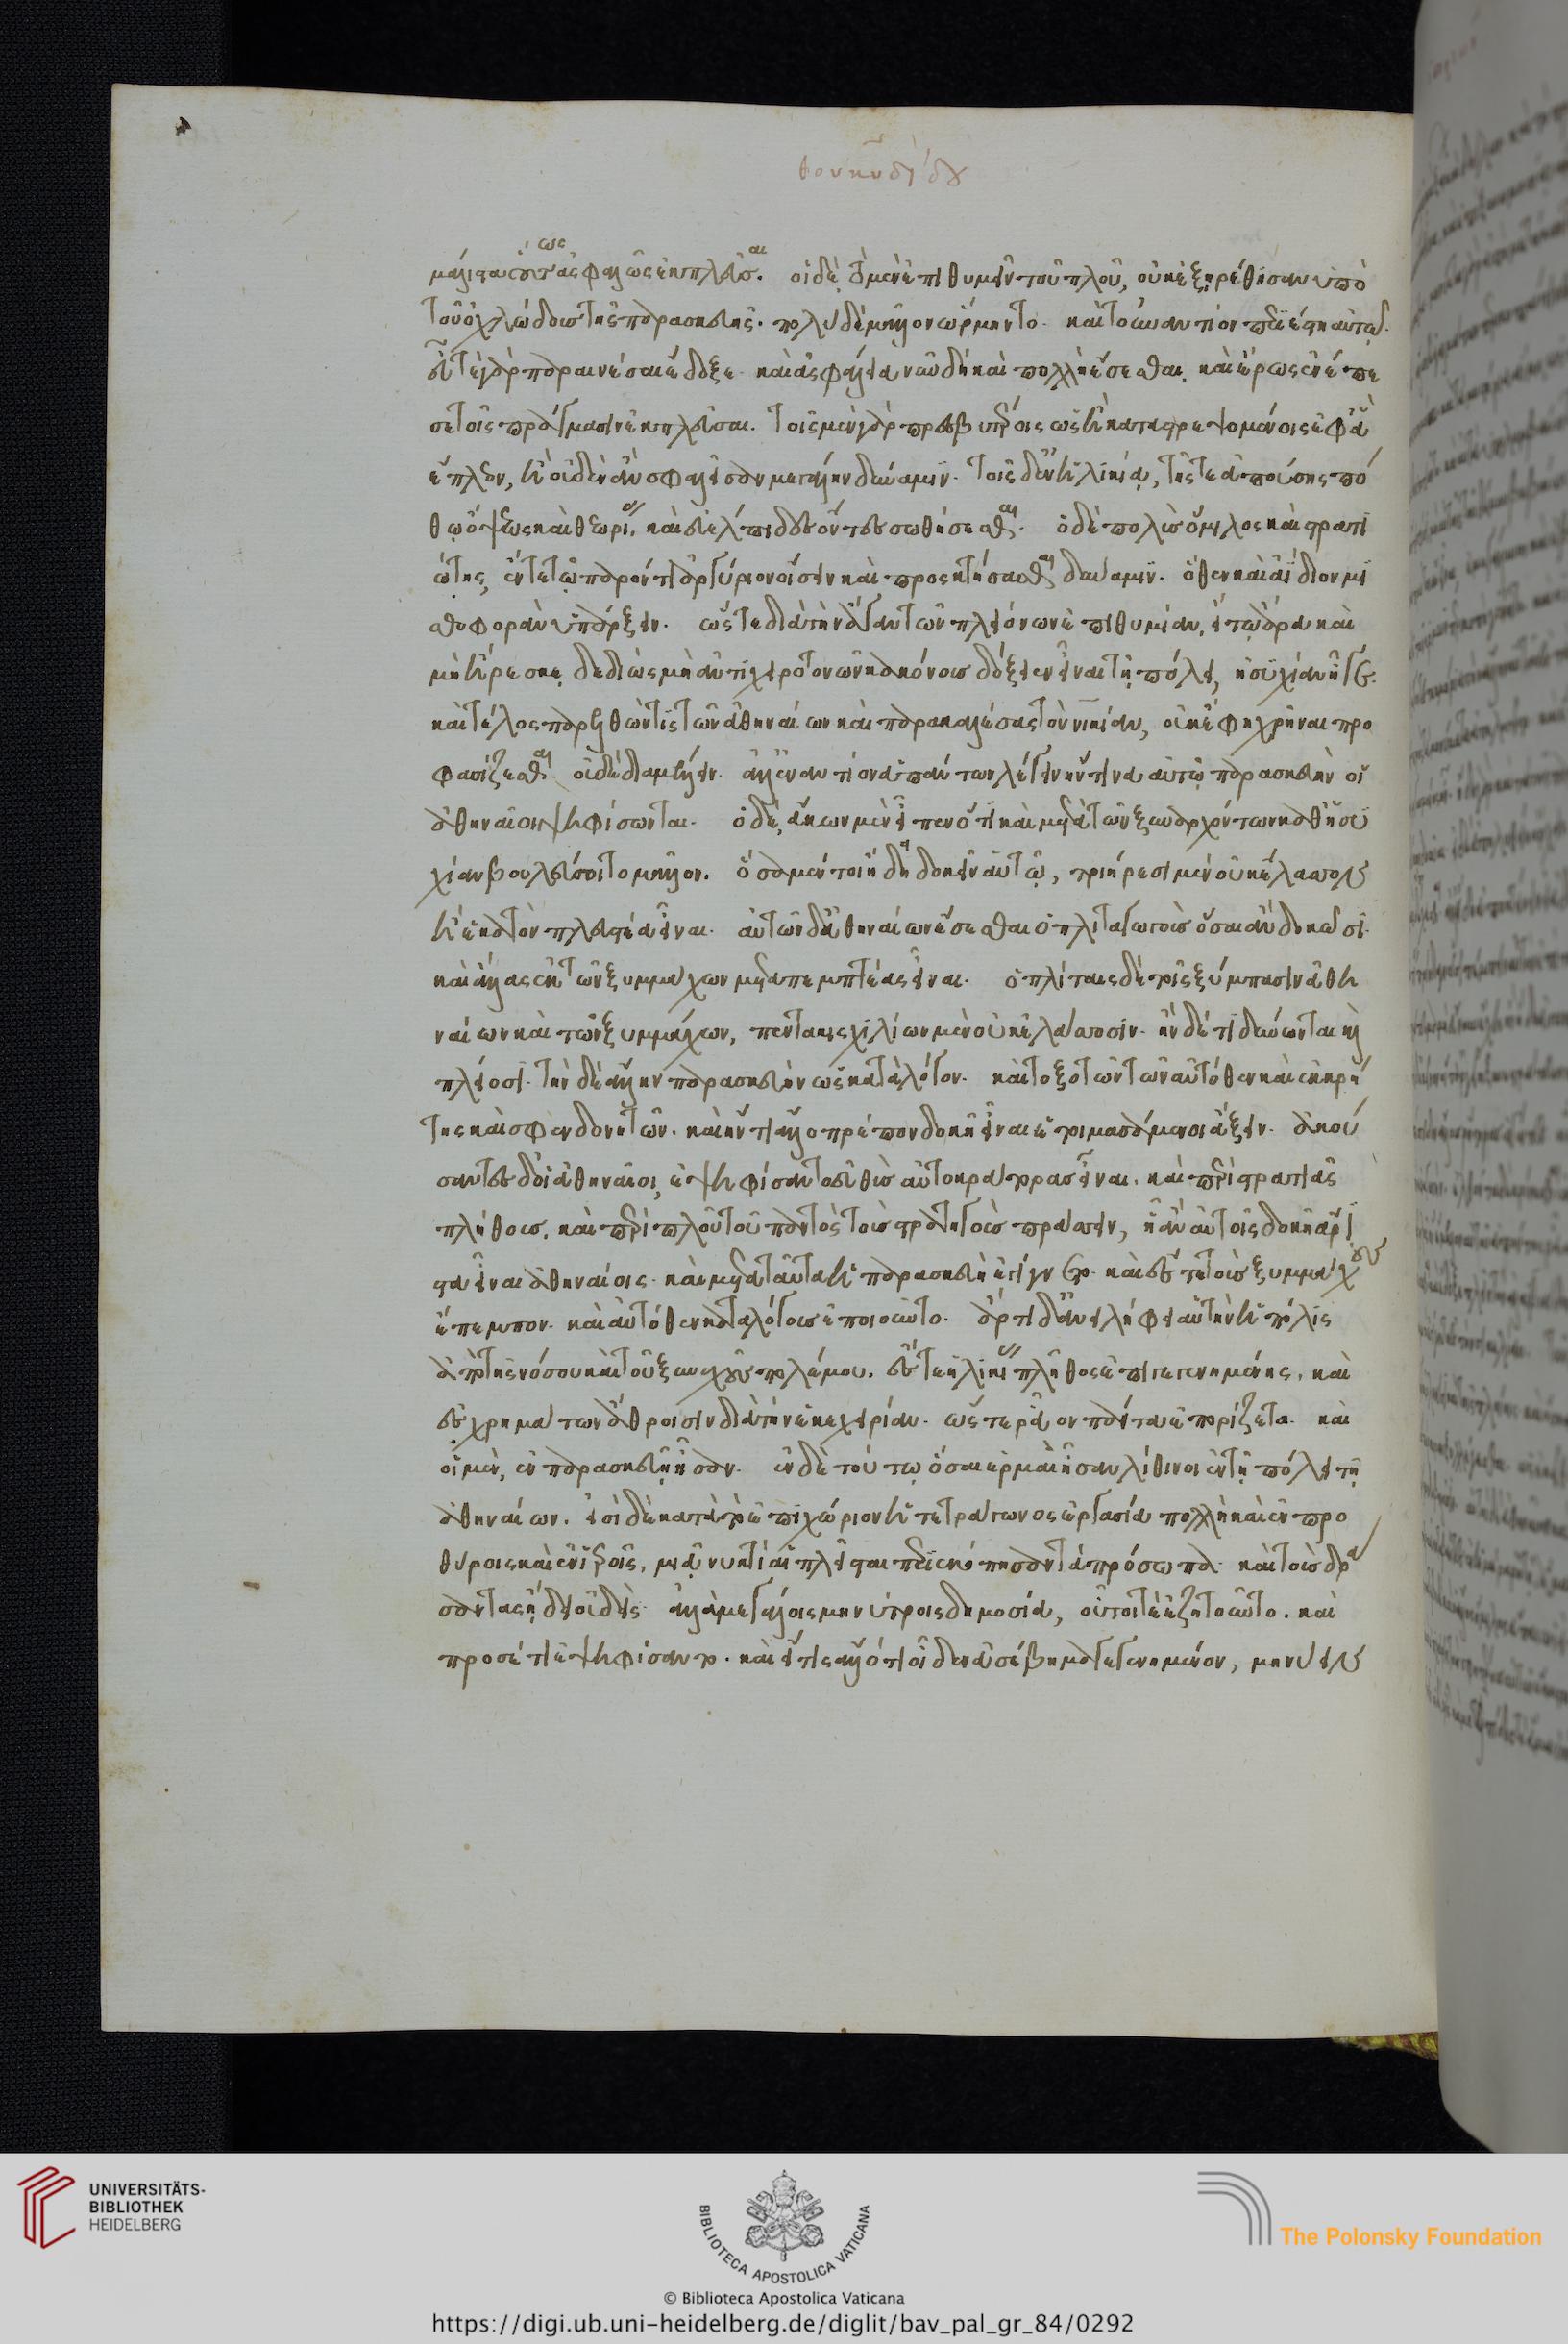 θουκυδίδου
μάλιστα οὕτως ἀσφαλῶς ἐκπλεῦσαι. οἱ δὲ τὸ μὲν ἐπιθυμεῖν τοῦ πλοῦ, οὐκ ἐξῃρέθησαν ὑπὸ
τοῦ ὀχλώδους τῆς παρασκευῆς. πολὺ δὲ μᾶλλον ὥρμηντο. καὶ τοὐναντίον περιέστη αὐτῷ.
εὖ τε γὰρ παραινέσαι ἔδοξε. καὶ ἀσφάλεια νῦν δὴ καὶ πολλὴ ἔσεσθαι. καὶ ἔρως ἐνέπε
σε τοῖς πράγμασιν ἐκπλεῦσαι. τοῖς μὲν γὰρ πρεσβυτέροις ὡς ἢ καταστρεψομένοις ἐφ' ἃ
ἔπλεον, ἢ οὐδὲν ἂν σφαλεῖσαν μεγάλην δύναμιν. τοῖς δ' ἐν ἡλικίᾳ, τῆς τε ἀπούσης πό
θῳ ὄψεως καὶ θεωρίας, καὶ εὐέλπιδες ὄντες σωθήσεσθαι. ὁ δὲ πολὺς ὅμιλος καὶ στρατι
ώτης, ἐν τε τῷ παρόντι ἀργύριον οἴσειν καὶ προσκτήσασθαι δύναμιν. ὅθεν καὶ ἀΐδιον μι
σθοφορὰν ὑπάρξειν. ὥστε διὰ τὴν ἄγαν τῶν πλειόνων ἐπιθυμίαν, εἴ τῳ ἄρα καὶ
μὴ ἤρεσκε, δεδιὼς μὴ ἀντιχειροτονῶν κακόνους δόξειεν εἶναι τῇ πόλει, ἡσυχίαν ἦγε.
καὶ τέλος παρελθὼν τὶς τῶν ἀθηναίων καὶ παρακαλέσας τὸν νικίαν, οὐκ ἔφη χρῆναι προ
φασίζεσθαι οὐδὲ διαμέλλειν. ἀλλ' ἐναντίον ἁπάντων λέγειν ἥντινα αὐτῷ παρασκευὴν οἱ
ἀθηναῖοι ψηφίσωνται. ὁ δὲ, ἄκων μὲν εἶπεν ὅτι καὶ μετὰ τῶν ξυναρχόντων καθ' ἡσυ
χίαν βουλεύσοιτο μᾶλλον. ὅσα μέντοι ἤδη δοκεῖν αὐτῷ, τριήρεσι μὲν οὐκ ἔλασσον
ἢ ἑκατὸν πλευστέα εἶναι. αὐτῶν δ' ἀθηναίων ἔσεσθαι ὁπλιταγωγοὺς ὅσαι ἂν δοκῶσι.
καὶ ἄλλας ἐκ τῶν ξυμμάχων μεταπεμπτέας εἶναι. ὁπλίταις δὲ τοῖς ξύμπασιν ἀθη
ναίων καὶ τῶν ξυμμάχων, πεντακισχιλίων μὲν οὐκ ἐλάσσοσιν. ἢν δέ τι δύνωνται καὶ
πλέοσι. τὴν δὲ ἄλλην παρασκευὴν ὡς κατὰ λόγον. καὶ τοξοτῶν τῶν αὐτόθεν καὶ ἐκ κρή
της καὶ σφενδονητῶν. καὶ ἤν τι ἄλλο πρέπον δοκῇ εἶναι ἑτοιμασάμενοι ἄξειν. ἀκού
σαντες δ' οἱ ἀθηναῖοι, ἐψηφίσαντο εὐθὺς αὐτοκράτορας εἶναι. καὶ περὶ στρατιᾶς
πλήθους. καὶ περὶ πλοῦ τοῦ παντὸς τοὺς στρατηγοὺς πράσσειν, ᾗ ἂν αὐτοῖς δοκῇ ἄρι
στα εἶναι ἀθηναίοις. καὶ μετὰ ταῦτα ἡ παρασκευὴ ἐγίγνετο. καὶ ἔς τε τοὺς ξυμμάχους
ἔπεμπον. καὶ αὐτόθεν καταλόγους ἐποιοῦντο. ἄρτι δ' ἀνειλήφει αὑτὴν ἡ πόλις
ἀπὸ τῆς νόσου καὶ τοῦ ξυνεχοῦς πολέμου. ἔς τε ἡλικίας πλῆθος ἐπιγεγενημένης, καὶ
ἐς χρημάτων ἄθροισιν διὰ τὴν ἐκεχειρίαν. ὥστε ῥᾷον πάντα ἐπορίζετο. καὶ
οἱ μὲν, ἐν παρασκευῇ ἦσαν. ἐν δὲ τούτῳ ὅσαι ἑρμαῖ ἦσαν λίθινοι ἐν τῇ πόλει τῇ
ἀθηναίων. εἰσὶ δὲ κατὰ τὸ ἐπιχώριον ἡ τετράγωνος ἐργασία πολλὴ καὶ ἐν προ
θύροις καὶ ἐν ἱεροῖς, μιᾷ νυκτὶ αἱ πλεῖσται περιεκόπησαν τὰ πρόσωπα. καὶ τοὺς δρά
σαντας ᾔδει οὐδεὶς. ἀλλὰ μεγάλοις μηνύτροις δημοσία, οὗτοι τὲ ἐζητοῦντο. καὶ
προσέτι ἐψηφίσαντο. καὶ εἴ τις ἄλλό τι οἶδεν ἀσέβημα γεγενημένον, μηνύειν
UNIVERSITÄTS-
BIBLIOTHEK
HEIDELBERG
BIBLIOTECA APOSTOLICA VATICANA
The Polonsky Foundation
© Biblioteca Apostolica Vaticana
https://digi.ub.uni-heidelberg.de/diglit/bav_pal_gr_84/0292